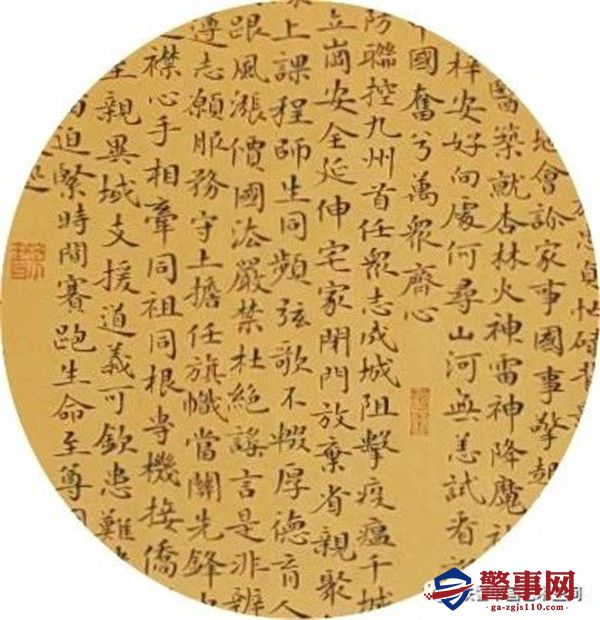 地會診家事國事擎
醫築就杏林火神雷神降魔
梓安好向處何尋山河無恙試看
中國奮兮萬眾齊心
防聯控九州首任眾志成城阻擊疫瘟千城
立崗安全延伸宅家閉門放棄省親聚
上課程師生同頻弦歌不輟厚德育人
跟風漲價國法嚴禁杜絕謠言是非辨
遵志願服務守土擔任旗幟當關先鋒
襟心手相牽同祖同根專機接僑
至親異域支援道義可欽患難
迫緊時間賽跑生命至尊
警事网
ga-zgjs110.com